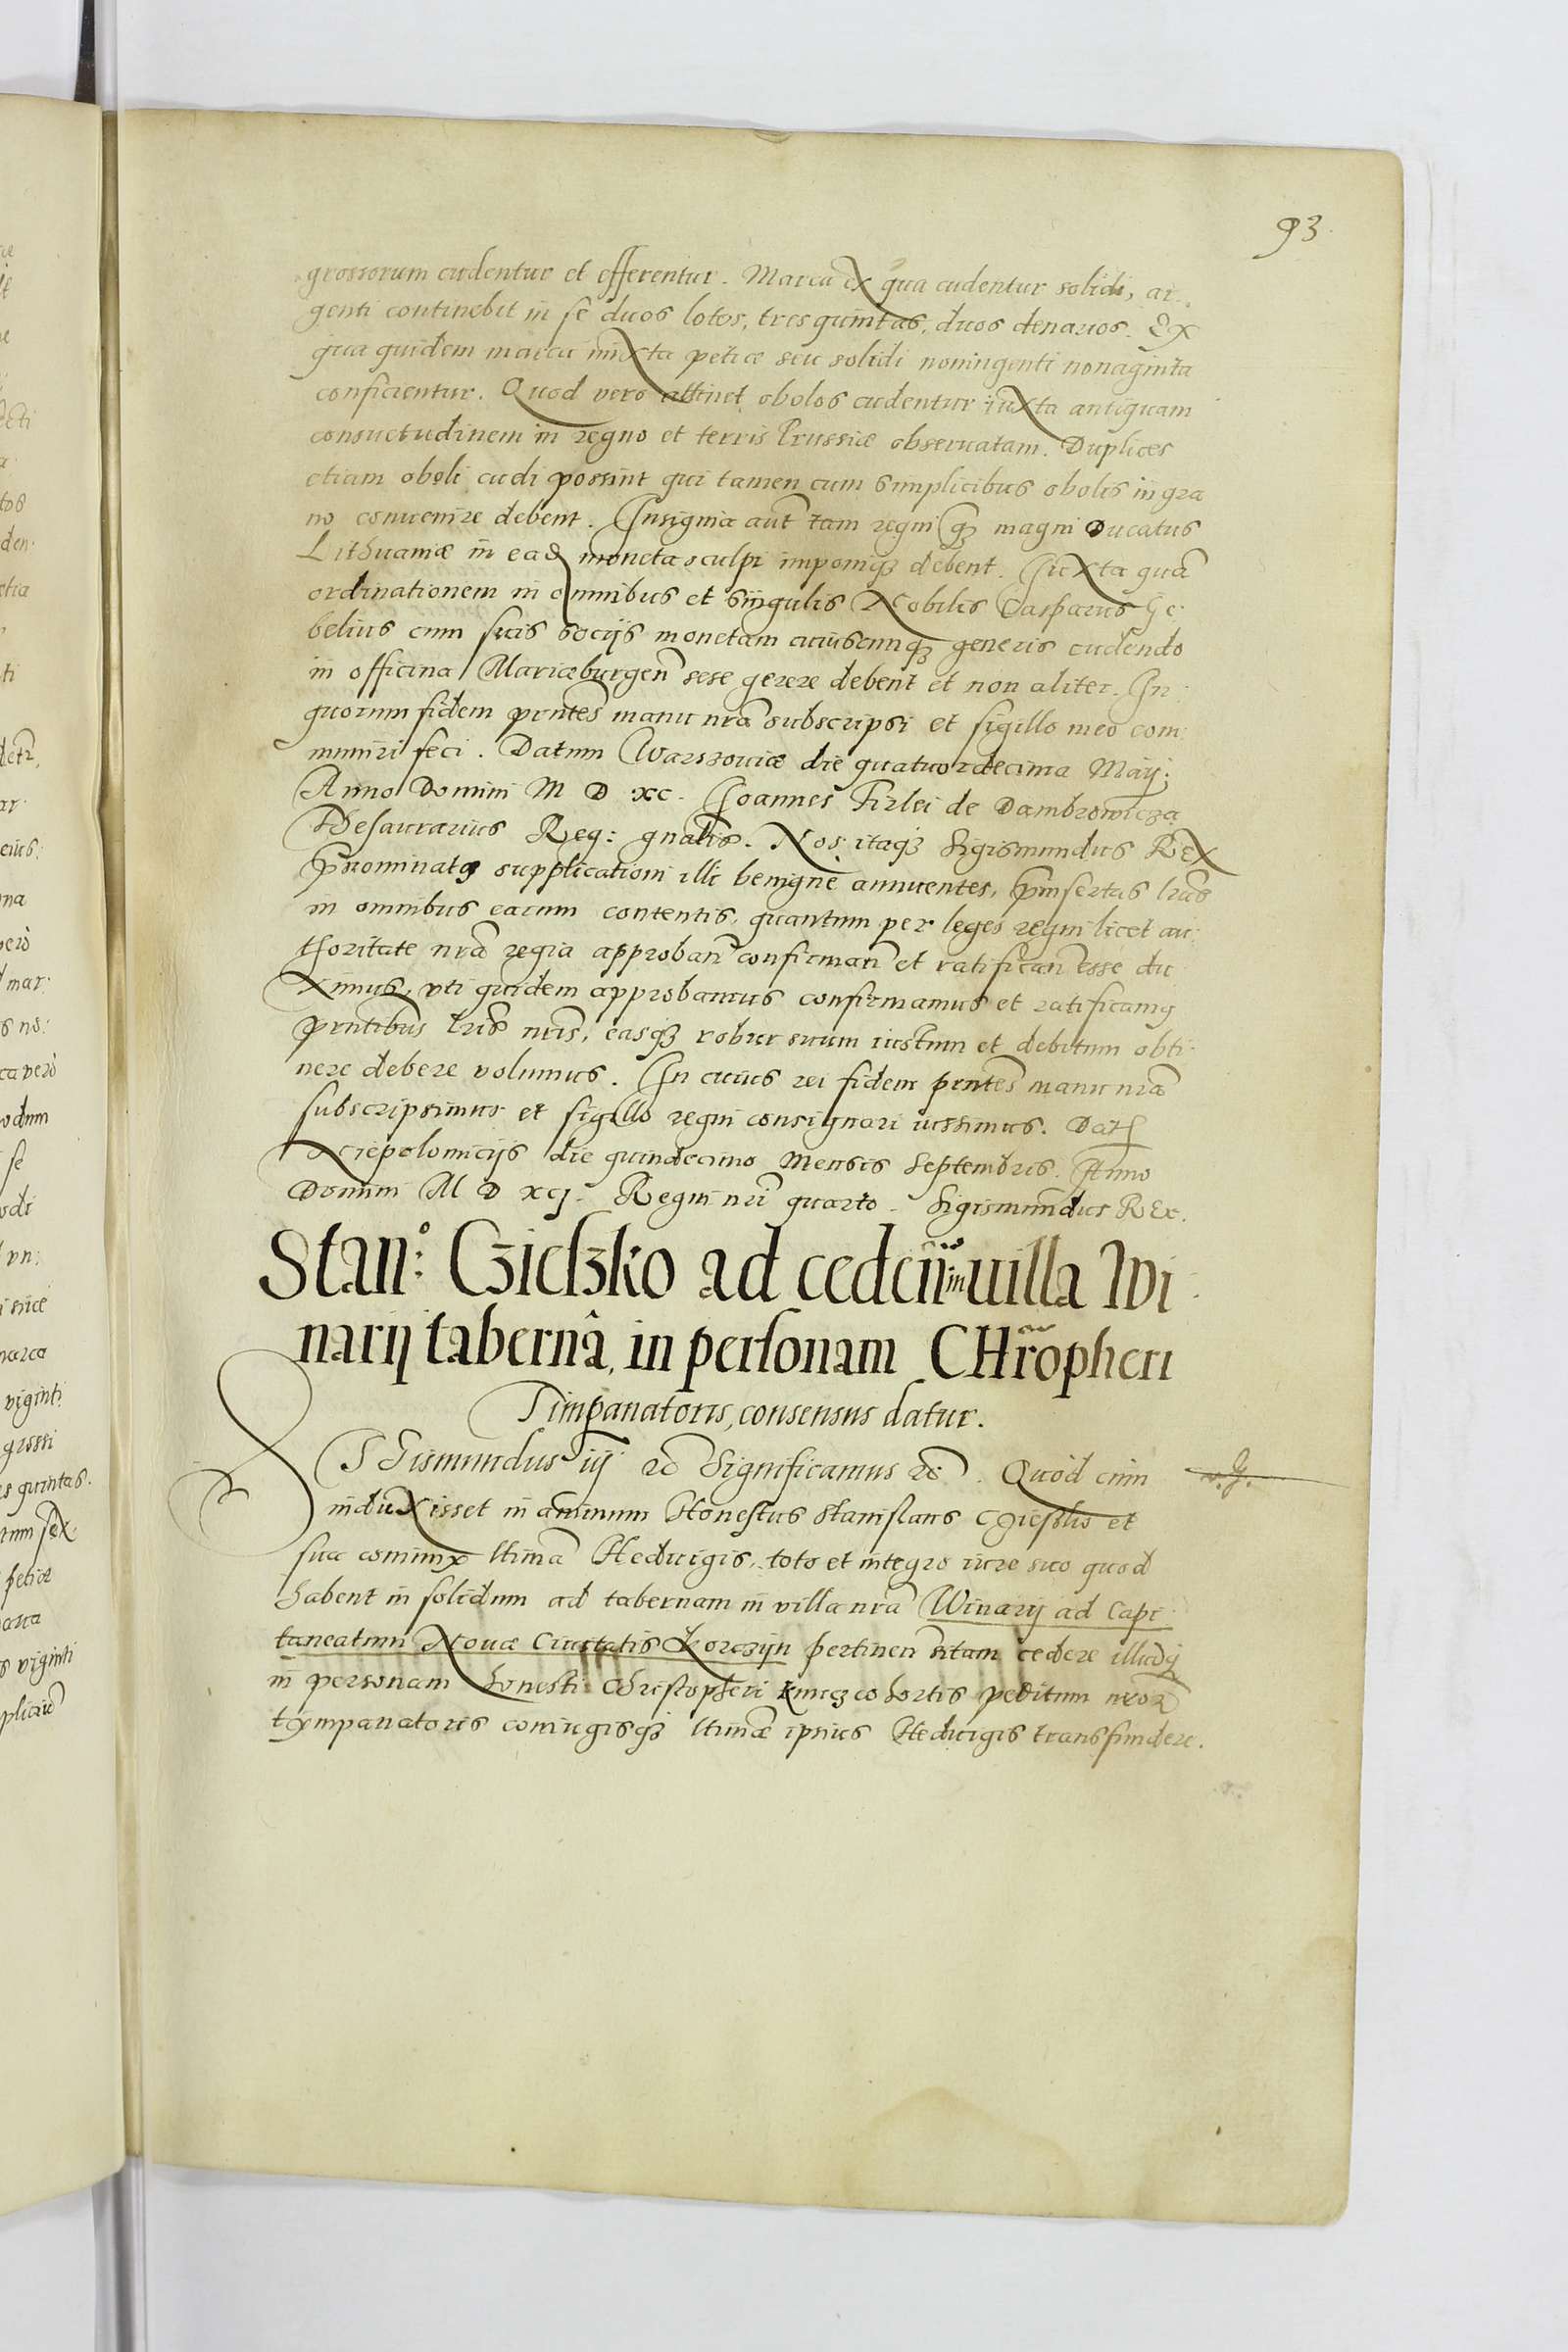 93.
grossorum cudentur et efferentur. Marca ex qua cudentur solidi, ar:
genti continebit in se duos lotos, tres quintas, duos denarios. Ex
qua quidem marca mixta peticæ seu solidi noningenti nonaginta
conficientur. Quod vero attinet obolos cudentur iuxta antiquam
consuetudinem in regno et terris Prussiæ obseruatam. Duplices
etiam oboli cudi possint qui tamen cum simplicibus obolis in gra
no conuenire debent. Insignia aut̃ tam regni q̃ magni Ducatus
Lithuaniæ in ead moneta sculpi imponiq3 debent. Iuxta quã
ordinationem in omnibus et singulis Nobilis Casparus Ge:
belius cum suis socijs monetam cuiuscunq3 generis cudendo
in officina Mariæburgeñ sese gerere debent et non aliter. In
quorum fidem pñtes manu mrã subscripsi et sigillo meo com:
muniri feci. Datum Warszouiæ die quatuordecima Maij:
Anno Domini M D xc. Joannes Firlei de Dambrowicza
Thesaurarius Reg: gñalis. Nos itaq3 Sigismundus Rex
prænominatę supplicationi illi benignè annuentes, præinsertas lras
in omnibus earum contentis, quantum per leges regni licet au:
thoritate nrã regia approbañ confirmañ et ratificañ esse du
ximus, vti quidem approbamus confirmamus et ratificamꝰ
pñtibus lris nris, easq3 robur suum iustum et debitum obti:
nere debere volumus. In cuius rei fidem pñtes manu nrã
subscripsimus et sigillo regni consignari iussimus. Dat
Niepolomicijs die quindecimo Mensis Septembris. Anno
Domini M D xcj. Regni nri quarto. Sigismundus Rex.
Stanº: Czieszko ad cedeñ: in uilla Wi
narij tabernâ, in personam CHrõpheri
Timpanatoris, consensus datur.
SIGismundus iij &c Significamus &c. Quod cum
induxisset in animum Honestus Stanislaus Czieszko et
sua coniunx ltimã Heduigis, toto et integro iure suo quod
habent in solidum ad tabernam in villa nrã Winarij ad Capi
taneatum Nouæ Ciuitatis Korczijn pertineñ sitam cedere illudq3
in personam honesti Christopheri cohortis peditum nror̃
tympanatoris coniugisq3 ltimæ ipsius Heduigis transfundere.